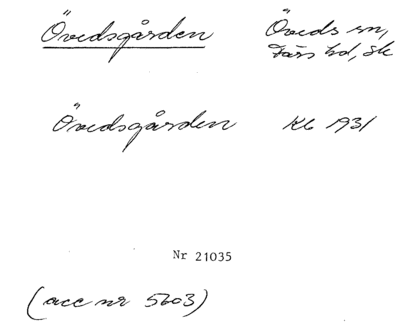 Övedsgården Öveds sn,
Färs hd, sk
Övedsgården Kb 1931
Nr 21035
(acc nr 5603)